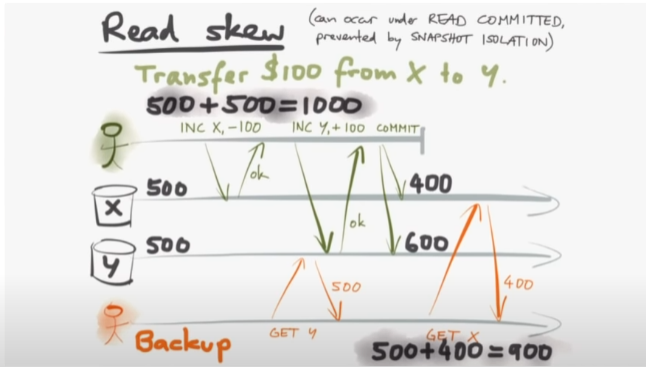 Read skew
(can occur under READ COMMITTED,
prevented by SNAPSHOT ISOLATION)
Transfer $100 from X to Y.
500+500=1000
INC X,-100
INC Y,+100
COMMIT
ok
500
400
X
ok
500
600
Y
500
400
GET Y
GET X
Backup
500+400=900